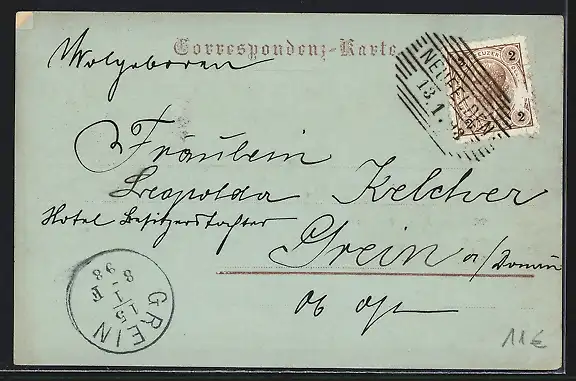 Correspondenz-Karte
Wolgeboren
2 KREUZER 2
2
NEUFELDEN
13.1.98
Fräulein
Leopolda Kelcher
Hotel Besitzerstochter
Grein a/Donau
Ob Öst
GREIN
15
1
98
11€